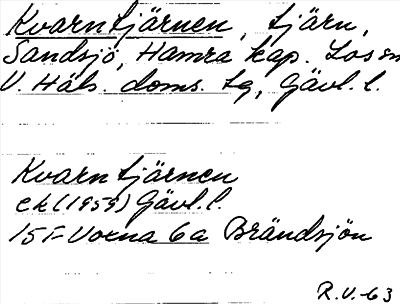 Kvarntjärnen, tjärn,
Sandsjö, Hamra kap. Los sn
V. Häls. doms. tg, Gävl. l.
Kvarntjärnen
ek (1959) Gävl. l.
15F Voxna 6a Brändsjön
R.V. -63